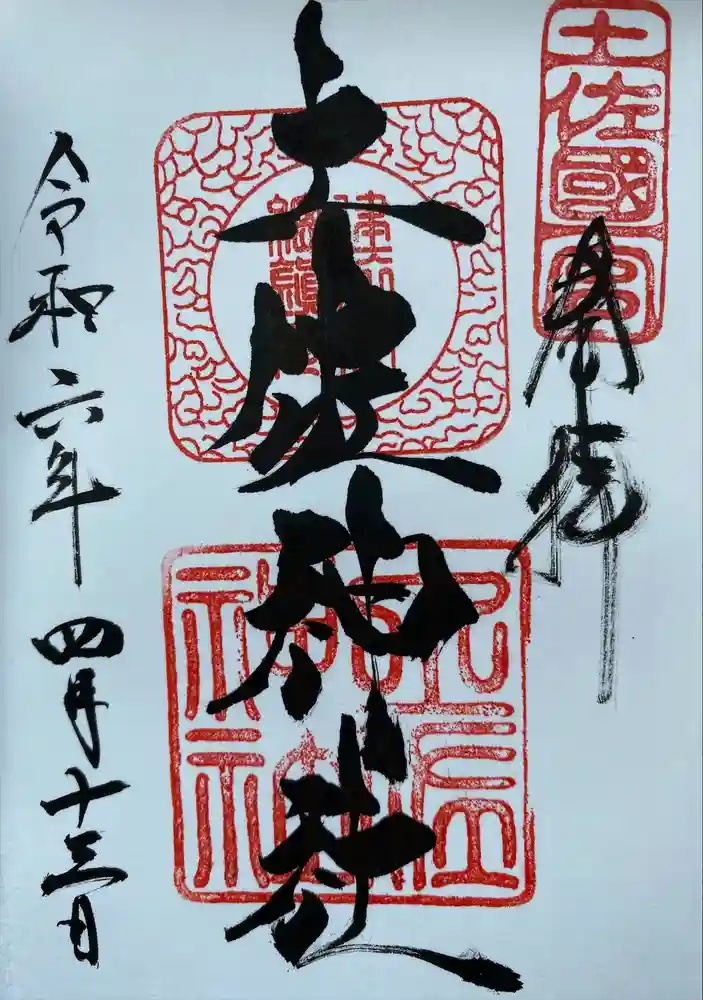 土佐國一宮
奉拝
土佐神社
土佐
神社
令和六年四月十三日